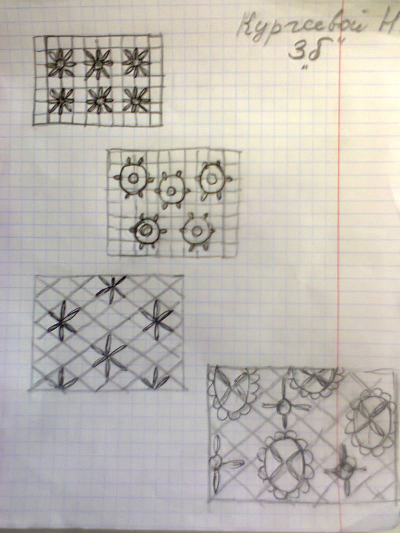 Кургсевой Н.
3"б"